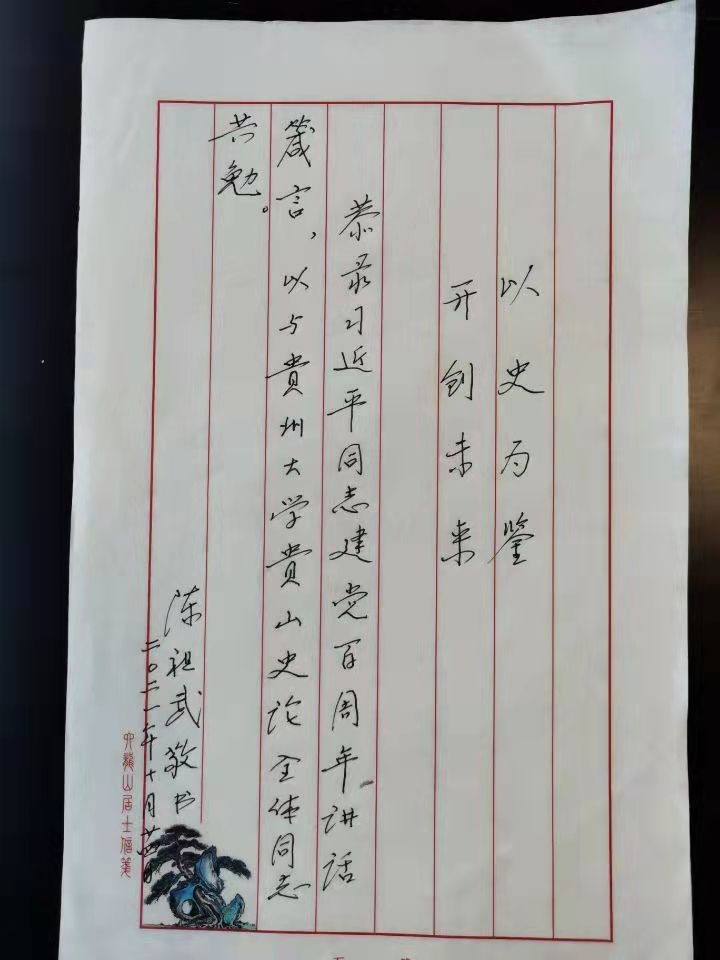 以史为鉴
开创未来
恭录习近平同志建党百周年讲话
箴言，以与貴州大学貴山史论全体同志
共勉。
陈祖武敬书
二〇二一年十月廿四日
六龍山居士信箋